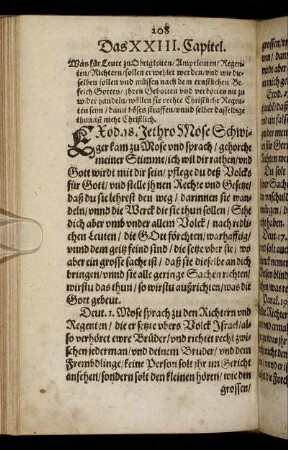 208
Das XXIII. Capitel.
Was für Leute zu Obrigkeiten / Amptleuten / Regen-
ten / Richtern / sollen erwehlet werden / vnd wie die-
selben sollen vnd müssen nach dem ernstlichen Be-
felich Gottes / jhren Gebotten vnd verbotten nie zu
wider handeln / wöllen sie rechte Christliche Regen-
ten seyn / dann böses straffen / vnnd selber dasselbige
thun / ist nicht Christlich.
EXod. 18. Jethro Mose Schwi-
ger kam zu Mose vnd sprach / gehorche
meiner Stimme / ich will dir rathen / vnd
Gott wirdt mit dir sein / pflege du deß Volcks
für Gott / vnd stelle jhnen Rechte vnd Gesetze /
daß du sie lehrest den weg / darinnen sie wan-
deln / vnnd die Werck die sie thun sollen / Sihe
dich aber vmb vnder allem Volck / nach redli-
chen Leuten / die GOtt förchten / warhafftig /
vnnd dem geitz feind sind / die setze vber sie / wo
aber ein grosse sache ist / daß sie dieselbe an dich
bringen / vnnd sie alle geringe Sachen richten /
wirstu das thun / so wirstu außrichten / was dir
Gott gebeut.
Deut. 1. Mose sprach zu den Richtern vnd
Regenten / die er setzte vbers Volck Jsrael / al-
so verhöret ewre Brüder / vnd richtet recht zwi-
schen jederman / vnd deinem Bruder / vnd dem
Frembdlinge / keine Person solt jhr im Gericht
ansehen / sondern solt den kleinen hören / wie den
grossen /